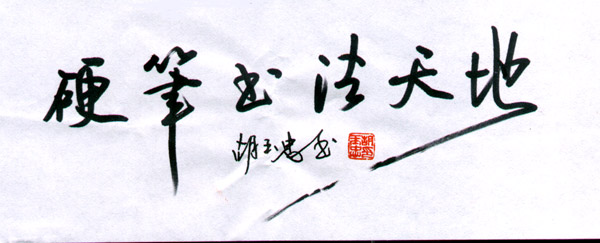 硬筆书法天地
胡玉忠书